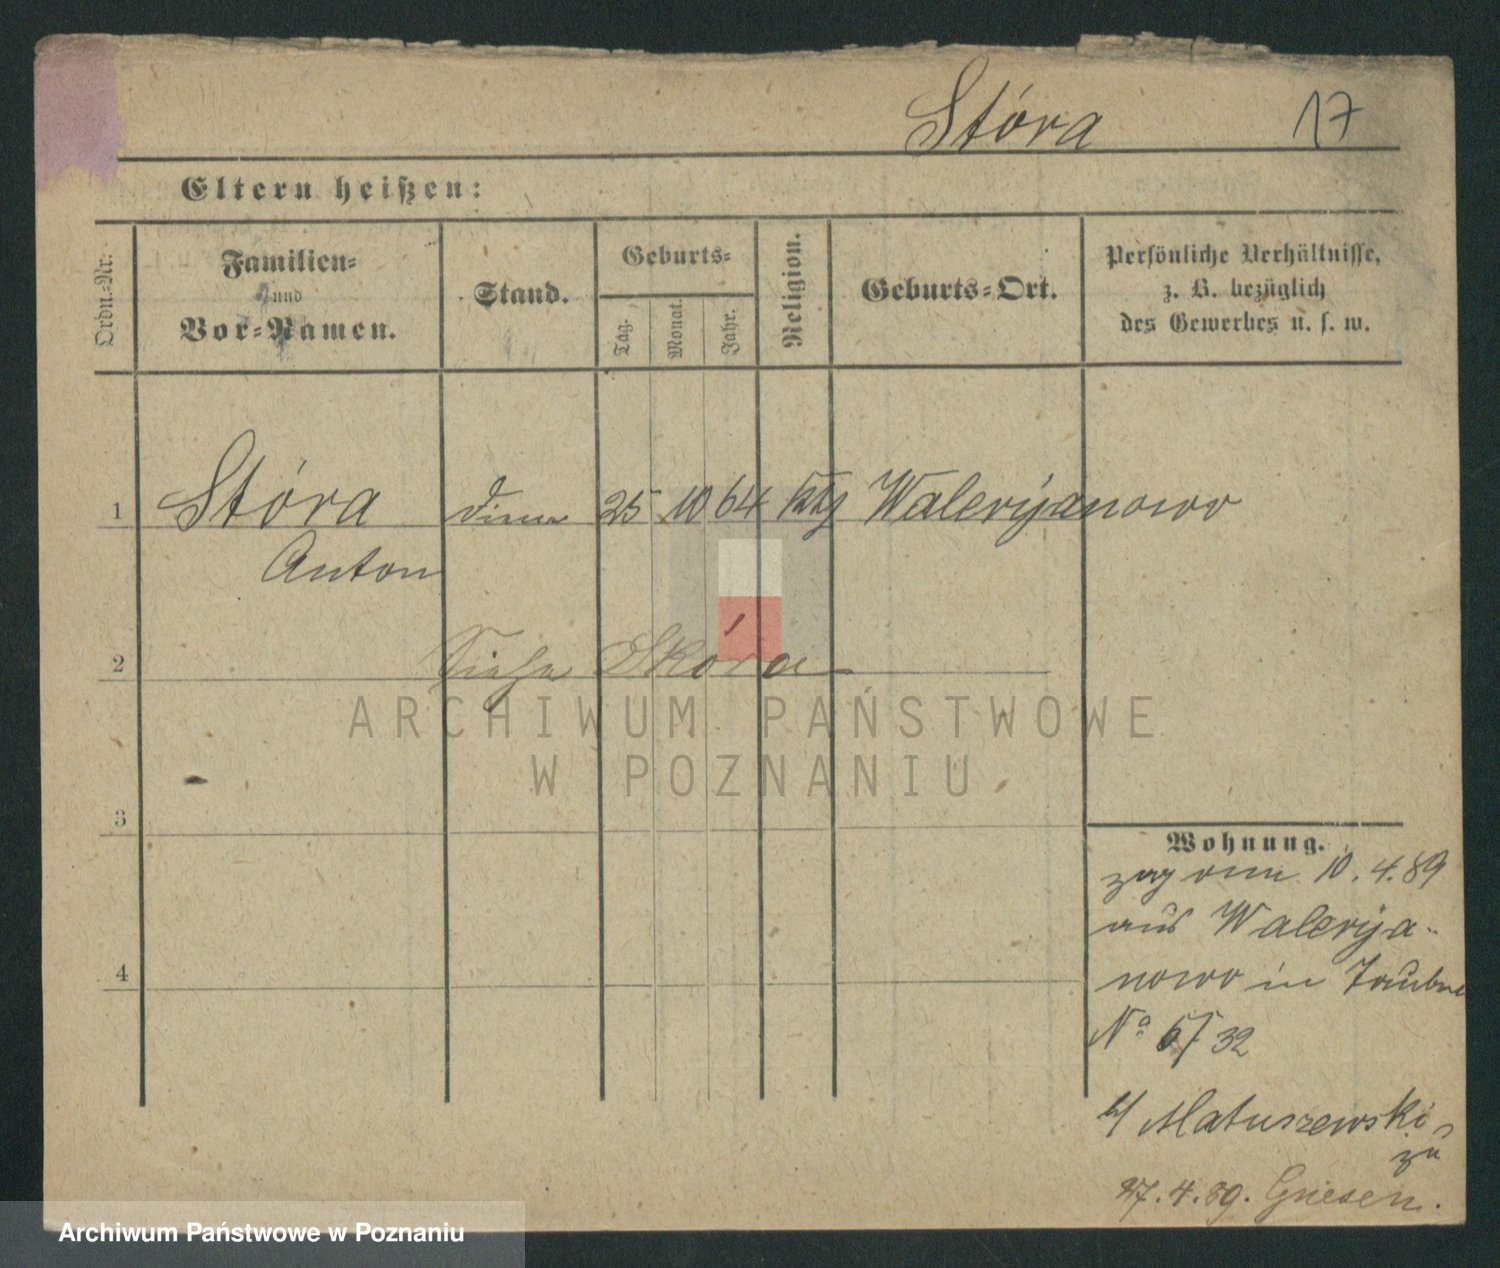 Stóra 17
Eltern heißen:
Ordn.-Nr.
Familien-
und
Vor-Namen.
Stand.
Geburts-
Tag.
Monat.
Jahr.
Religion.
Geburts-Ort.
Persönliche Verhältnisse,
z. B. bezüglich
des Gewerbes u. s. w.
1 Stóra Diener 25 10 64 kth Walerijanowo
Anton
2 Siehe Skóra
ARCHIWUM PAŃSTWOWE
W POZNANIU
3
Wohnung.
zog vom 10.4.89
aus Walerija-
nowo in
4
No 32
b/ Matuszewski
zu
27.4.89. Gnesen.
Archiwum Państwowe w Poznaniu